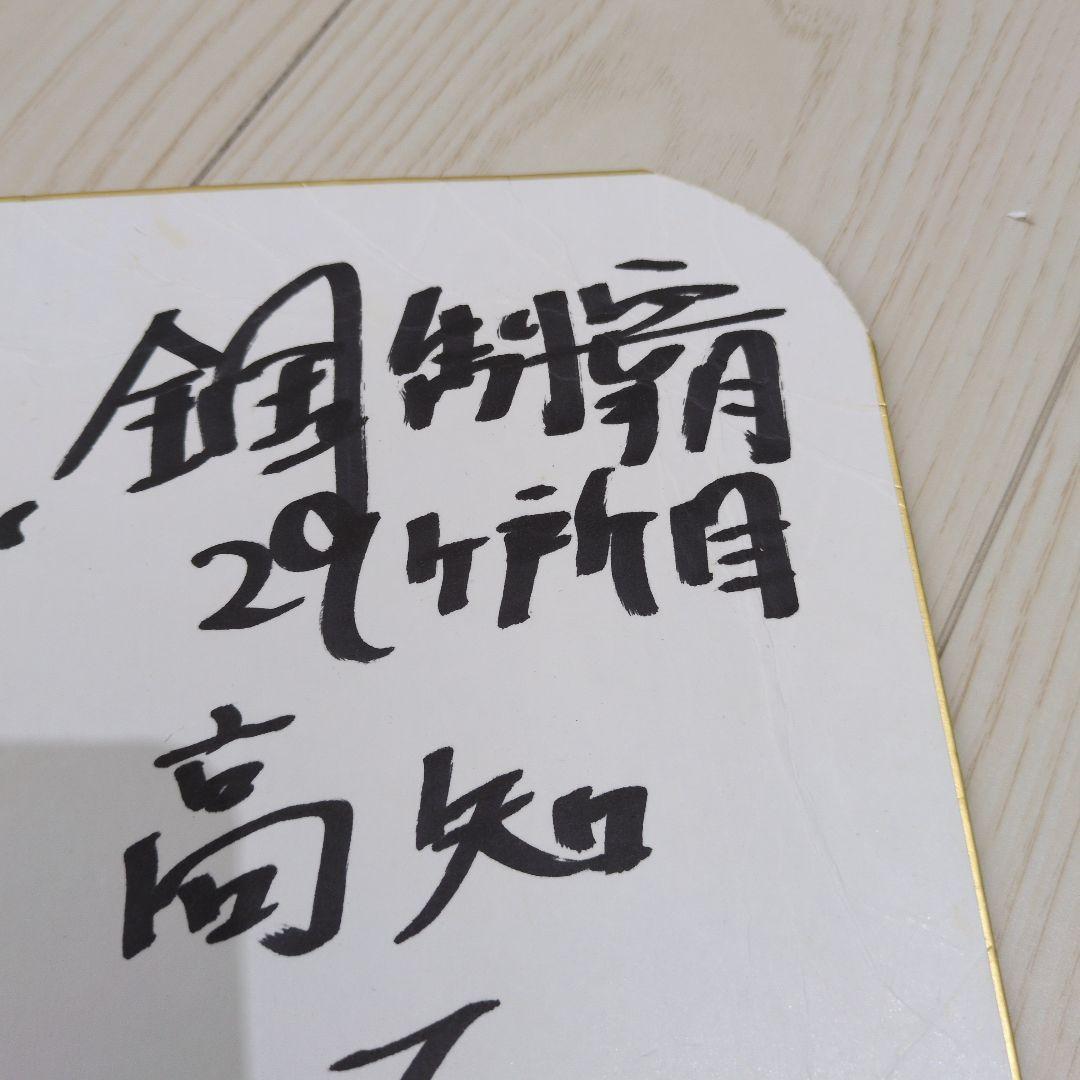 全国制覇
29ヶ所目
高知